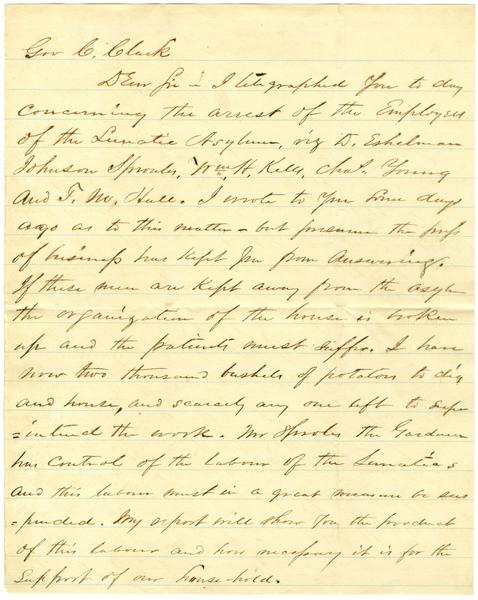 Gov C. Clark
Dear Sir - I telegraphed You to day
concerning the arrest of the Employees
of the Lunatic Asylum, viz D. Eshelman
Johnson Sproles, Wm H. Kells, Chas. Young
and T. M. Hall. I wrote to You some days
ago as to this matter - but presume the press
of business has kept You from Answering.
If these men are kept away from the asylum
the organization of the house is broken
up and the patients must suffer. I have
now two thousand bushels of potatoes to dig
and house, and scarcely any one left to supe
=intend the work. Mr Sproles the Gardner
has control of the labour of the Lunatics
and this labour must in a great measure be sus
=pended. My report will show You the product
of this labour and how necessary it is for the
support of our house-hold.